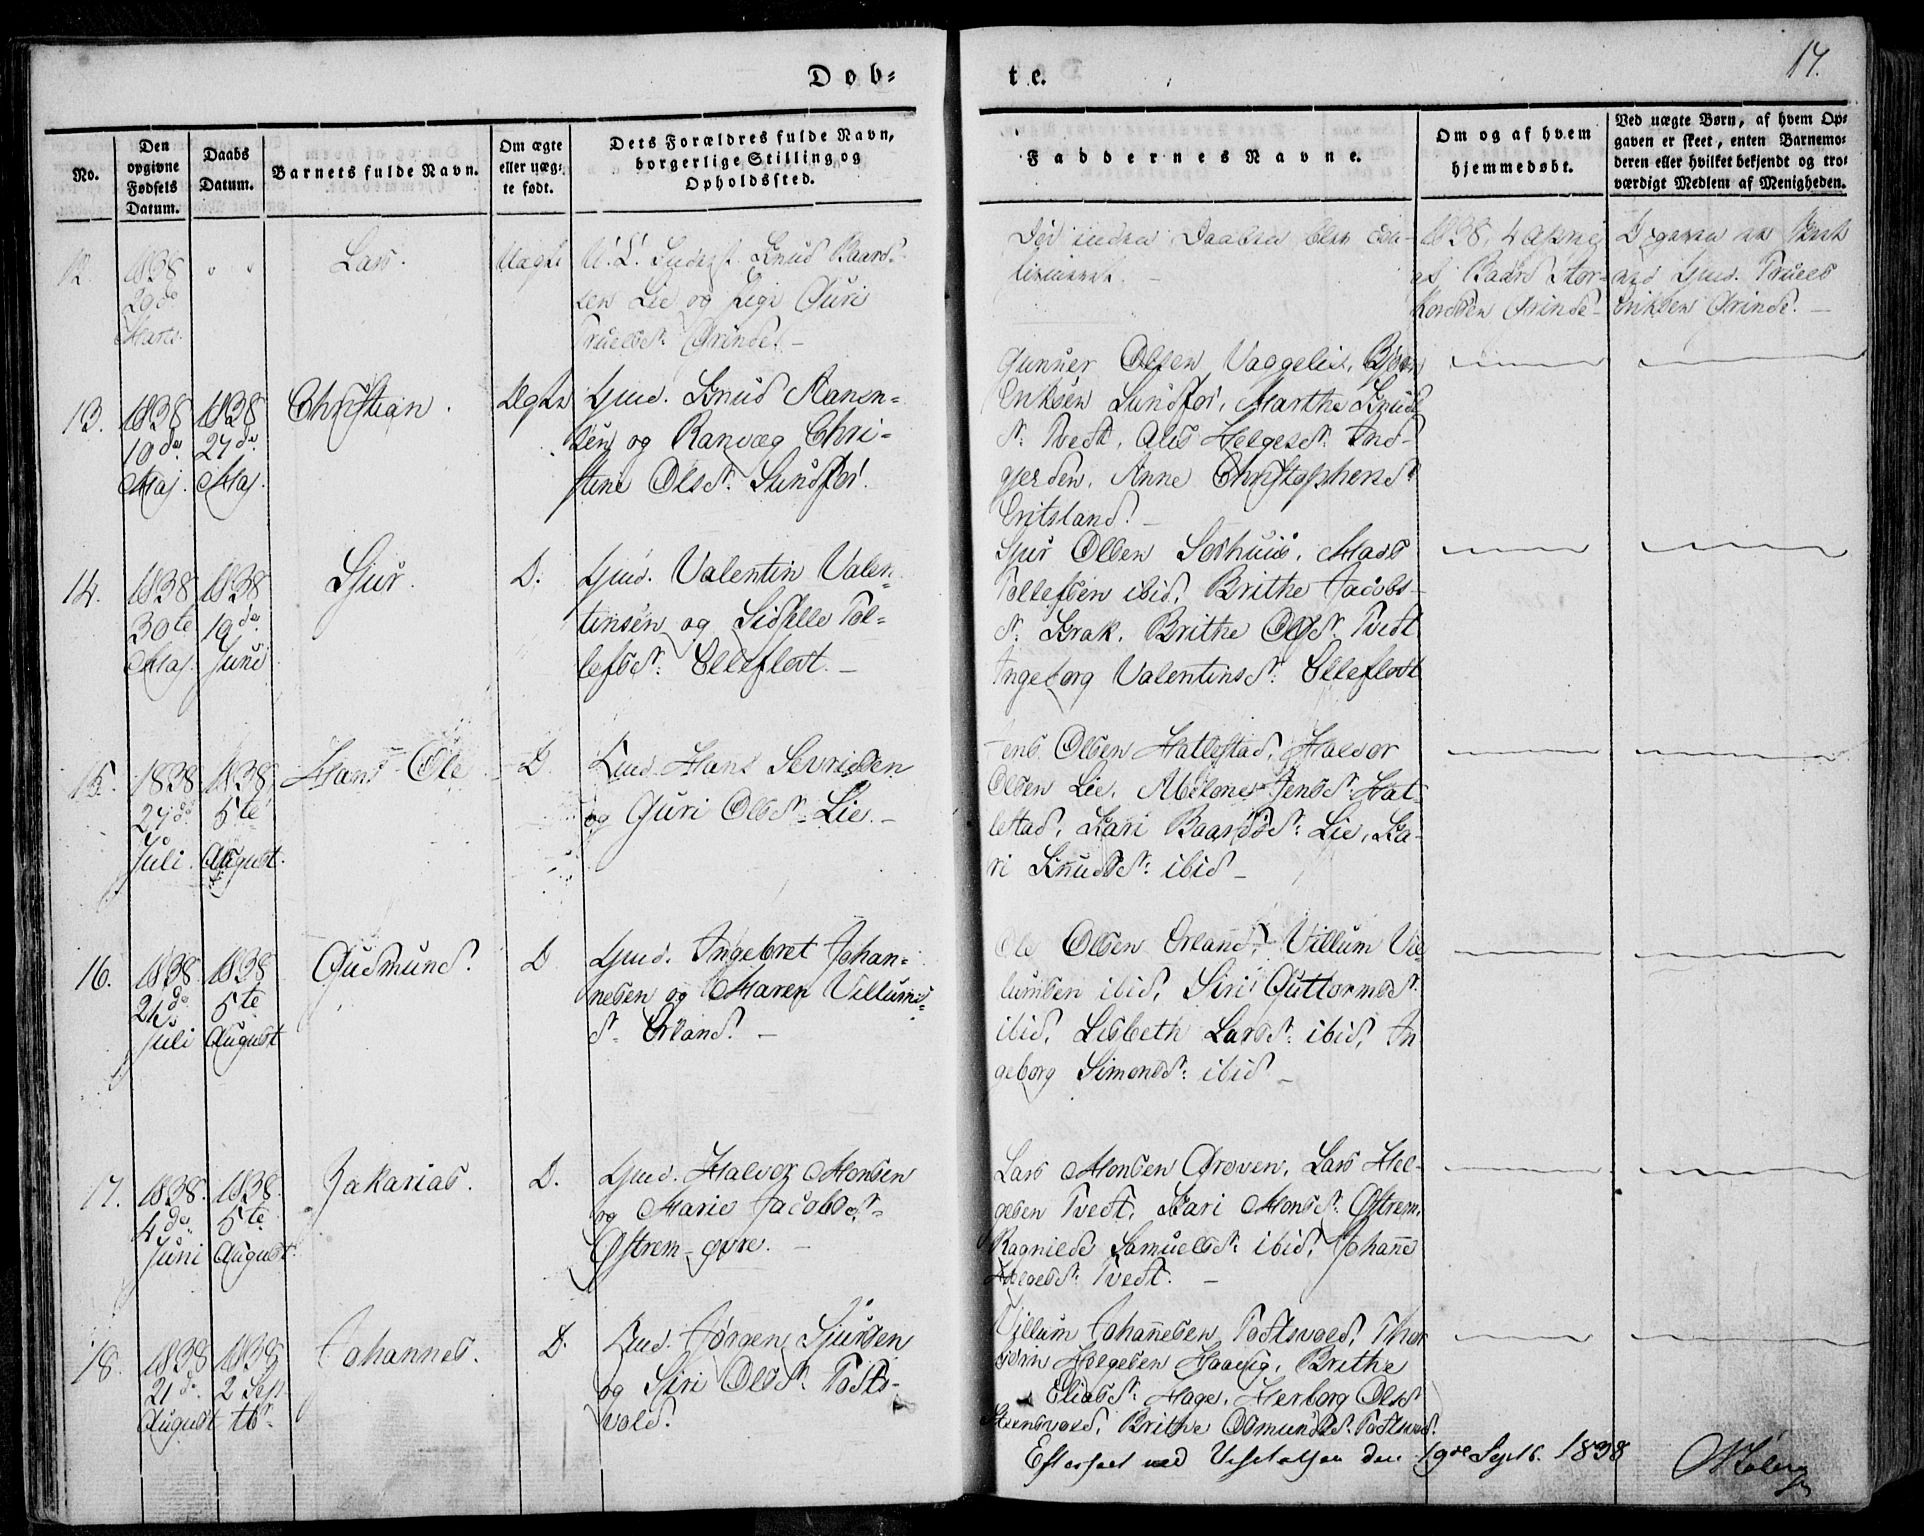 Døb-
te.
17.
No.
Den
opgivne
Fødsels
Datum.
Daabs
Datum.
Barnets fulde Navn.
Om ægte
eller uæg-
te født.
Dets Forældres fulde Navn,
borgerlige Stilling og
Opholdssted.
Faddernes Navne.
Om og af hvem
hjemmedøbt.
Ved uægte Børn, af hvem Op-
gaven er skeet, enten Barnemo-
deren eller hvilket bekjendt og tro-
værdigt Medlem af Menigheden.
12.
1838
29de
Marts.
" "
Lars.
Uægte
Knud Baard-
sen Lie og Pige Guri
Truelsdr. Grinde. -
inden Daaben blev
1838, 4 
af Baard Stor-
Grinde -
Opgaven
Gmd. Truels
Eriksen Grinde. -
13.
1838
10de
Maj.
1838
27de
Maj.
Christian.
Ægte
Gmd. Knud Hansen-
sen og Ranveg Chri-
stine Olsdr. Sundfør.
Gunner Olsen Vaggelie, Bjørn
Eriksen Sundfør, Marthe Knuds
dr. Tvedt, Helgesdr. Ind-
gjerden, Anne Christophersdr
Eritsland. -
14.
1838
30te
Maj.
1838
10de
Juni
Sjur.
D.
Gmd. Valentin Valen-
tinsen og Sidselle Tol-
lefsdr. Elleflodt. -
Sjur Olsen Sørhuus, Mads
Tollefsen ibid, Brithe Jacobs-
dr. Krak, Brithe Olsdr. Tvedt
Ingeborg Valentinsdr. Elleflodt
15.
1838
27de
Juli.
1838
5te
August.
Hans Ole
D.
Hans Sevridsen
og Guri Olsdr. Lie. -
Jens Olsen Hatlestad, Halvor
Olsen Lie, Abelone Jensdr. Hat-
lestad, Kari Baardsdr. Lie, Ka-
ri Knudsdr. ibid -
16.
1838
24de
Juli
1838
5te
August
Gudmund.
D
Gmd. Ingebret Johan-
nesen og Maren Villums-
dr. Ørland. -
Ole Olsen Ørland, Villum Vil-
lumsen ibid, Siri Guttormsdr.
ibid, Lisbeth Larsdr. ibid, In
geborg Simonsdr. ibid -
17.
1838.
4de
Juni
1838.
5te
August.
Zakarias.
D.
Gmd. Halvor Monsen
og Marie Jacobsdr.
Østrem-øvre. -
Lars Monsen Groven, Lars Hel-
gesen Tvedt, Kari Monsdr. Østrem,
Ragnilde Samuelsdr. ibid, Johanne
Helgesdr. Tvedt. -
18.
1838
21de
August
1838
2 Sep
tbr.
Johannes.
D.
Jørgen Sjursen
og Siri Olsdr. Tofts-
vold.
Villum Johannesen Toftsvold, Thor
bjørn Helgesen Haavig, Brithe
Eliasdr. Hage, Herborg Olsdr
Steensvold, Brithe Osmundsdr. Toftsvold.
Efterseet ved Visitatsen den 19de Septb. 1838